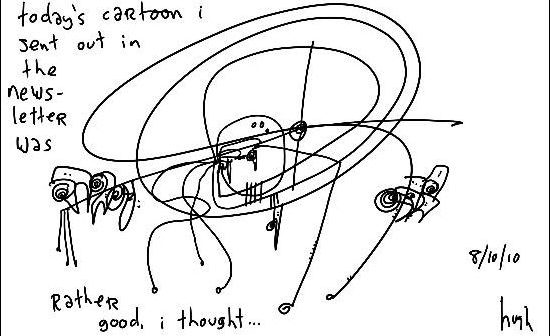 today's cartoon i
sent out in
the
news-
letter
was
Rather
good, i thought...
8/10/10
hugh